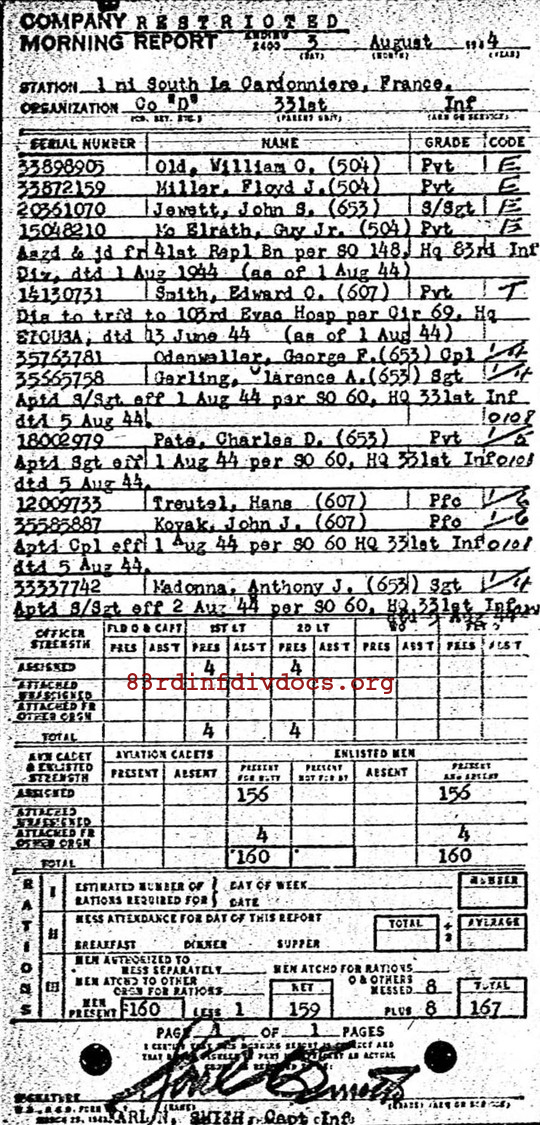 COMPANY RESTRICTED
MORNING REPORT ENDING 2400 3 August 1944
(DAY) (MONTH) (YEAR)
STATION 1 mi South La Cardonniere, France.
ORGANIZATION Co "D" 331st Inf
(PARENT UNIT) (ARM OR SERVICE)
SERIAL NUMBER NAME GRADE CODE
33898905 Old, William O. (504) Pvt E
33872159 Miller, Floyd J. (504) Pvt E
20361070 Jewett, John S. (653) S/Sgt E
15048210 Mc Elrath, Guy Jr. (504) Pvt E
Asgd & jd fr 41st Repl Bn per SO 148, Hq 83rd Inf
Div, dtd 1 Aug 1944 (as of 1 Aug 44)
14130731 Smith, Edward C. (607) Pvt T
Dis to trfd to 103rd Evac Hosp per Cir 69, Hq
ETOUSA, dtd 13 June 44 (as of 1 Aug 44)
35763781 Odenweller, George F. (653) Cpl
35565758 Gerling, Clarence A. (653) Sgt
Aptd S/Sgt eff 1 Aug 44 per SO 60, HQ 331st Inf
dtd 5 Aug 44. 0108
18002979 Pate, Charles D. (653) Pvt
Aptd Sgt eff 1 Aug 44 per SO 60, HQ 331st Inf 0108
dtd 5 Aug 44.
12009733 Treutel, Hans (607) Pfc
35585887 Kovak, John J. (607) Pfc
Aptd Cpl eff 1 Aug 44 per SO 60 HQ 331st Inf 0108
dtd 5 Aug 44.
33337742 Madonna, Anthony J. (653) Sgt
Aptd S/Sgt eff 2 Aug 44 per SO 60, HQ 331st Inf
dtd 5 Aug 44
OFFICER STRENGTH FLD O & CAPT 1ST LT 2D LT WO
PRES ABST PRES ABST PRES ABST PRES ABST PRES ABST
ASSIGNED 4 4
ATTACHED UNASSIGNED
83rdinfdivdocs.org
ATTACHED FR OTHER ORGN
TOTAL 4 4
AVN CADET & ENLISTED STRENGTH AVIATION CADETS ENLISTED MEN
PRESENT ABSENT PRESENT FOR DUTY PRESENT NOT FOR DY ABSENT PRESENT AND ABSENT
ASSIGNED 156 156
ATTACHED UNASSIGNED
ATTACHED FR OTHER ORGN 4 4
TOTAL 160 160
RATIONS
I ESTIMATED NUMBER OF RATIONS REQUIRED FOR DAY OF WEEK DATE NUMBER
II MESS ATTENDANCE FOR DAY OF THIS REPORT TOTAL ÷ 3 AVERAGE
BREAKFAST DINNER SUPPER
III MEN AUTHORIZED TO MESS SEPARATELY MEN ATCHD FOR RATIONS
MEN ATCHD TO OTHER ORGN FOR RATIONS NET O & OTHERS MESSED 8 TOTAL
MEN PRESENT 160 LESS 1 159 PLUS 8 167
PAGE 1 OF 1 PAGES
SIGNATURE
(NAME) (GRADE) (ARM OR SERVICE)
SMITH, Capt Inf